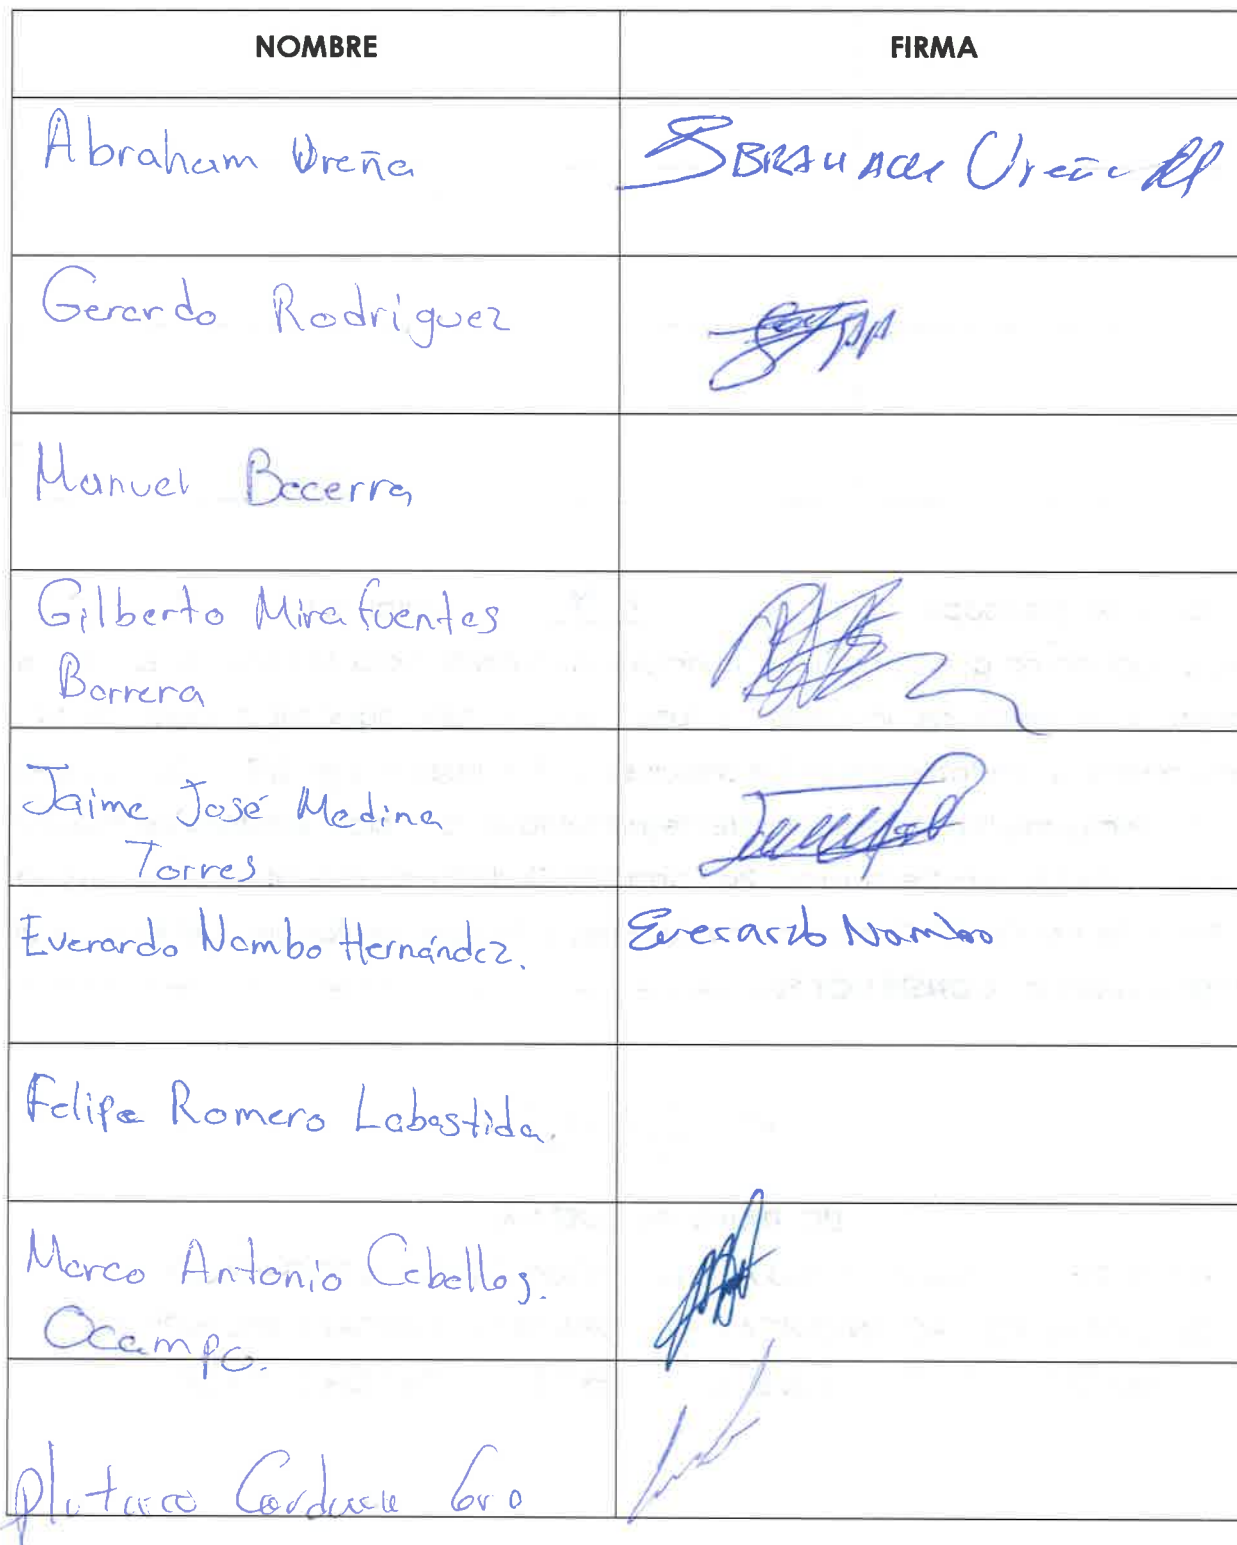 NOMBRE FIRMA
Abraham Ureña Ureña
Gerardo Rodríguez
Manuel Becerra
Gilberto Mirafuentes
Barrera
Jaime José Medina
Torres
Everardo Nambo Hernández. Everardo Nambo
Felipe Romero Labastida.
Marco Antonio Cebellos.
Ocampo.